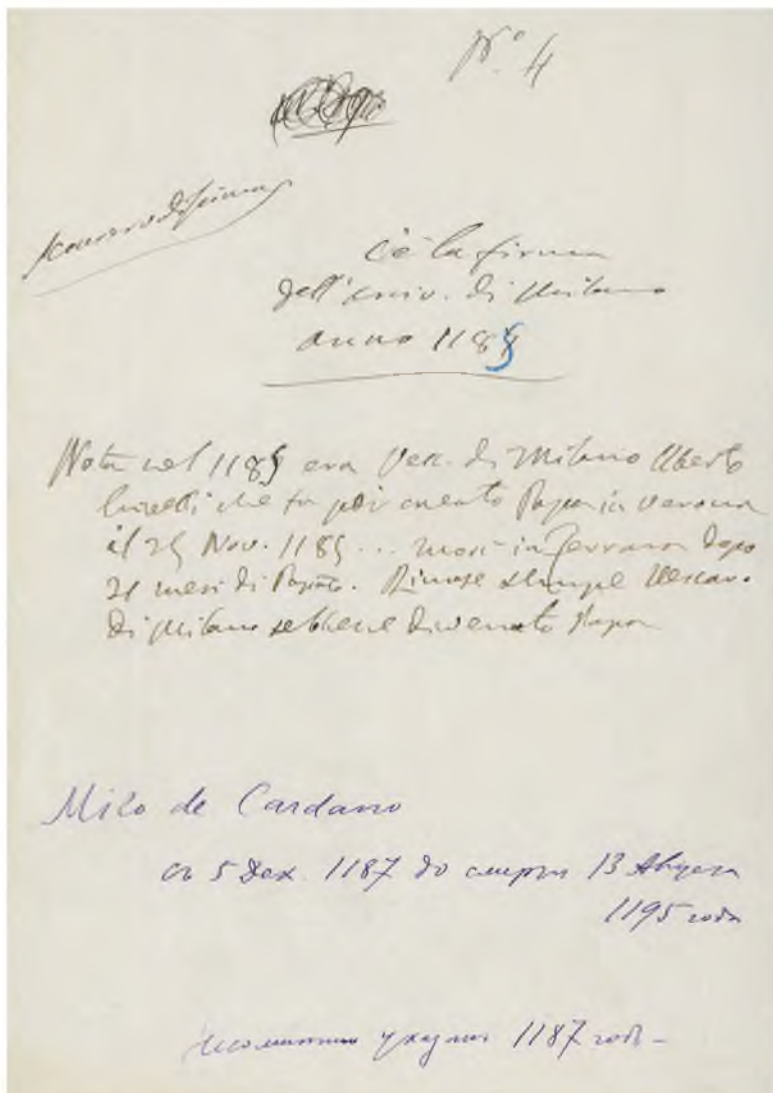 N.º 4
c'è la firma
dell'arciv. di Milano
anno 1185
Nota nel 1185 era Vesc. di Milano Uberto
Crivelli che fu poi creato Papa in Verona
il 25 Nov. 1185 ... morì in Ferrara dopo
21 mesi di Papato. Rimase sempre Vescov.
di Milano sebbene divenuto Papa
Milo de Cardano
съ 5 Дек. 1187 до смерти 13 Августа
1195 года
указанъ 1187 годъ –